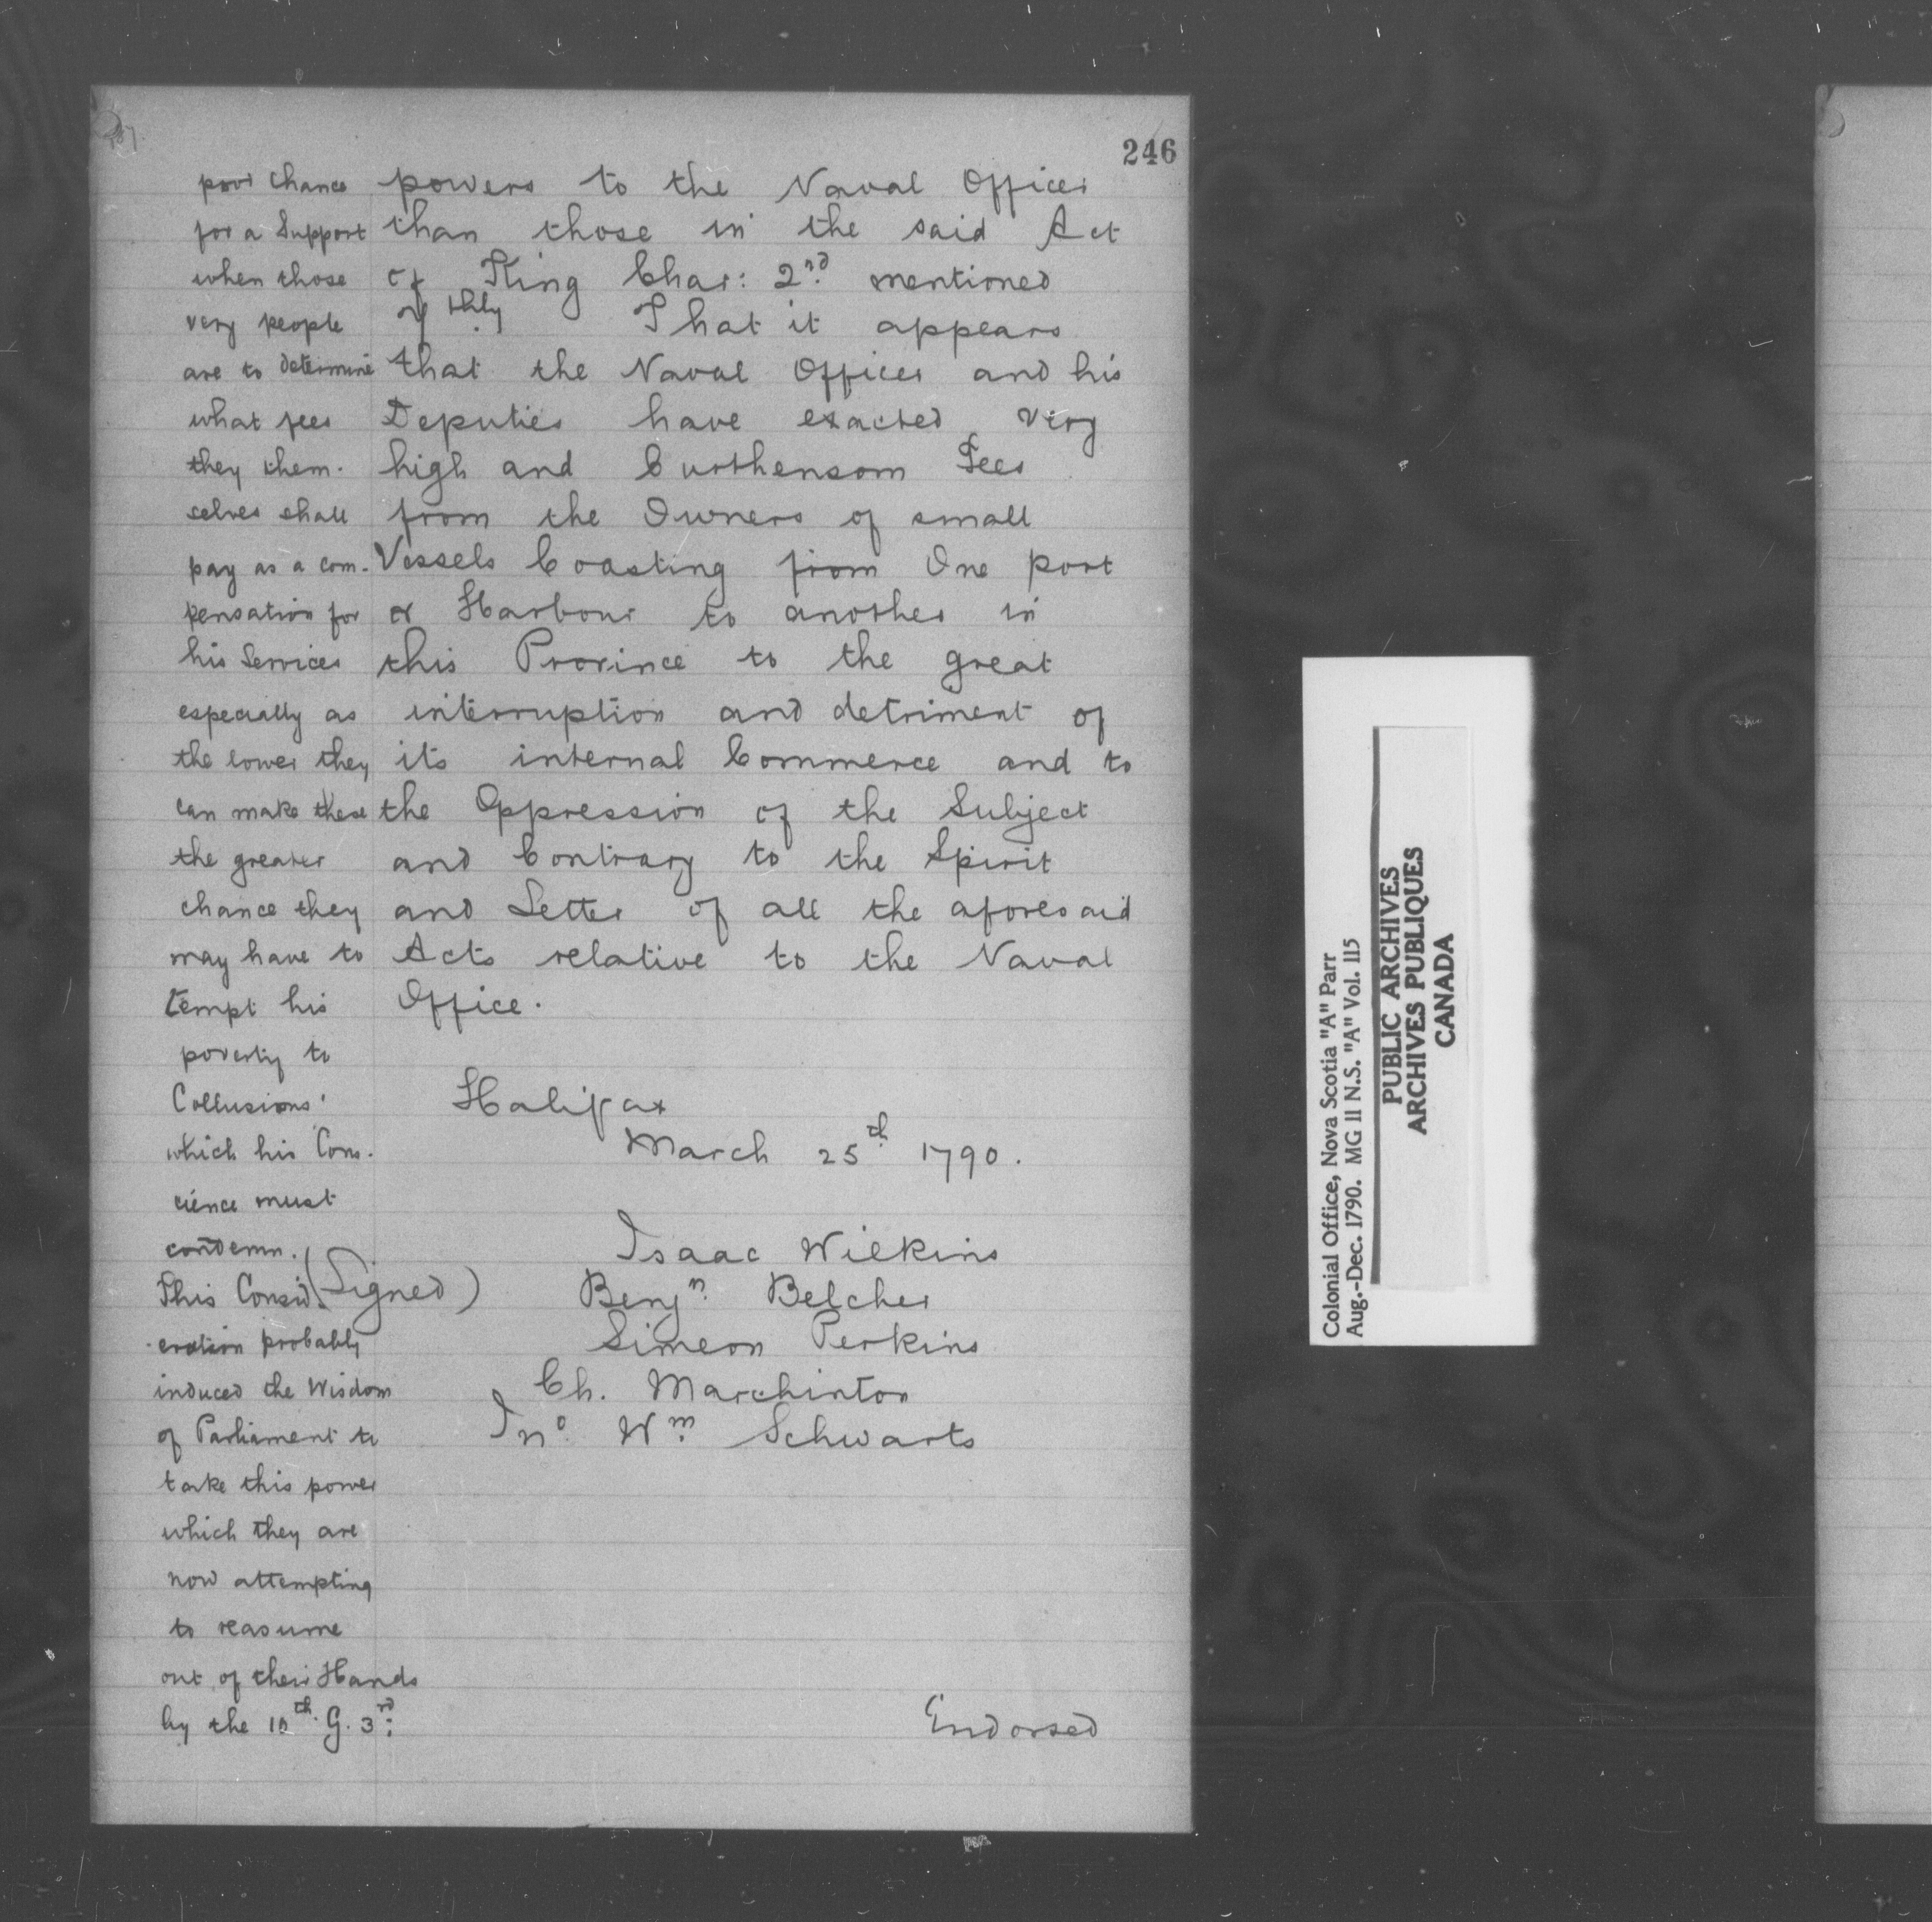 246
poor Chance
for a Support
when those
very people
are to determine
what fees
they them-
selves shall
pay as a com-
pensation for
his Services
especially as
the lower they
can make these
the greater
chance they
may have to
tempt his
poverty to
Collusions
which his Cons-
cience must
condemn.
This Consid-
eration probably
induced the Wisdom
of Parliament to
take this power
which they are
now attempting
to reasume
out of their Hands
by the 10th. G. 3rd:
powers to the Naval Officer
than those in the said Act
of King Char: 2nd mentioned
7thly That it appears
that the Naval Officer and his
Deputies have exacted very
high and Burthensom Fees
from the Owners of small
Vessels Coasting from One port
or Harbour to another in
this Province to the great
interruption and detriment of
its internal Commerce and to
the Oppression of the Subject
and Contrary to the Spirit
and Letter of all the aforesaid
Acts relative to the Naval
Office.
Halifax
March 25th 1790.
(Signed) Isaac Wilkins
Benjn Belcher
Simeon Perkins
Ch. Marchinton
Jno. Wm Schwarts
Endorsed
Colonial Office, Nova Scotia "A" Parr
Aug.-Dec. 1790. MG 11 N.S. "A" Vol. 115
PUBLIC ARCHIVES
ARCHIVES PUBLIQUES
CANADA